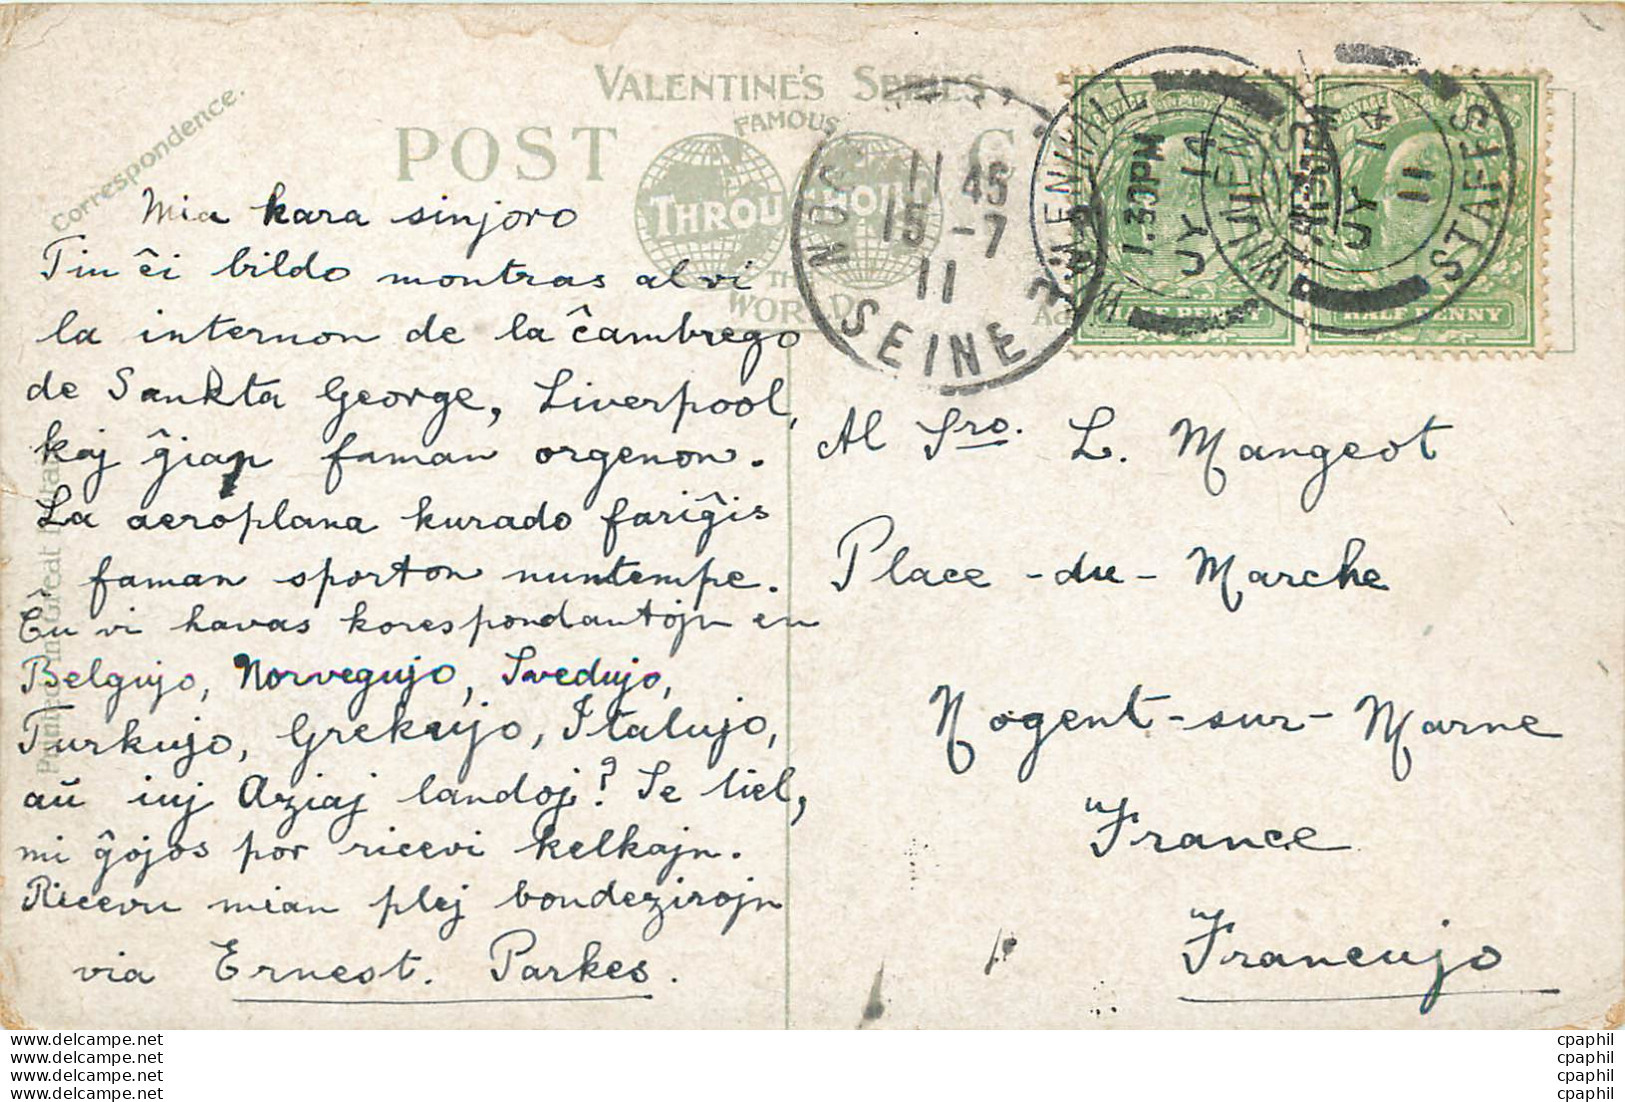 VALENTINE'S SERIES
FAMOUS
POST C
THROU HOUT
THE
WORLD
Correspondence.
Printed in Great Britain
Mia kara sinjoro
Tiu ĉi bildo montras al vi
la internon de la ĉambrego
de Sankta George, Liverpool,
kaj ĝian faman orgenon.
La aeroplana kurado fariĝis
faman sporton nuntempe.
Ĉu vi havas korespondantojn en
Belgujo, Norvegujo, Svedujo,
Turkujo, Grekujo, Italujo,
aŭ iuj Aziaj landoj? Se tiel,
mi ĝojos por ricevi kelkajn.
Ricevu mian plej bondezirojn
via Ernest. Parkes.
Al Sro. L. Mangeot
Place -du- Marche
Nogent-sur-Marne
"France
"Francujo
NOG
11 45
15 -7
11
SEINE
WILLENHALL
1.30PM
JY 14
HALF PENNY
WILLENHALL
1.30PM
JY 14
11
STAFFS
HALF PENNY
www.delcampe.net
www.delcampe.net
www.delcampe.net
www.delcampe.net
cpaphil
cpaphil
cpaphil
cpaphil